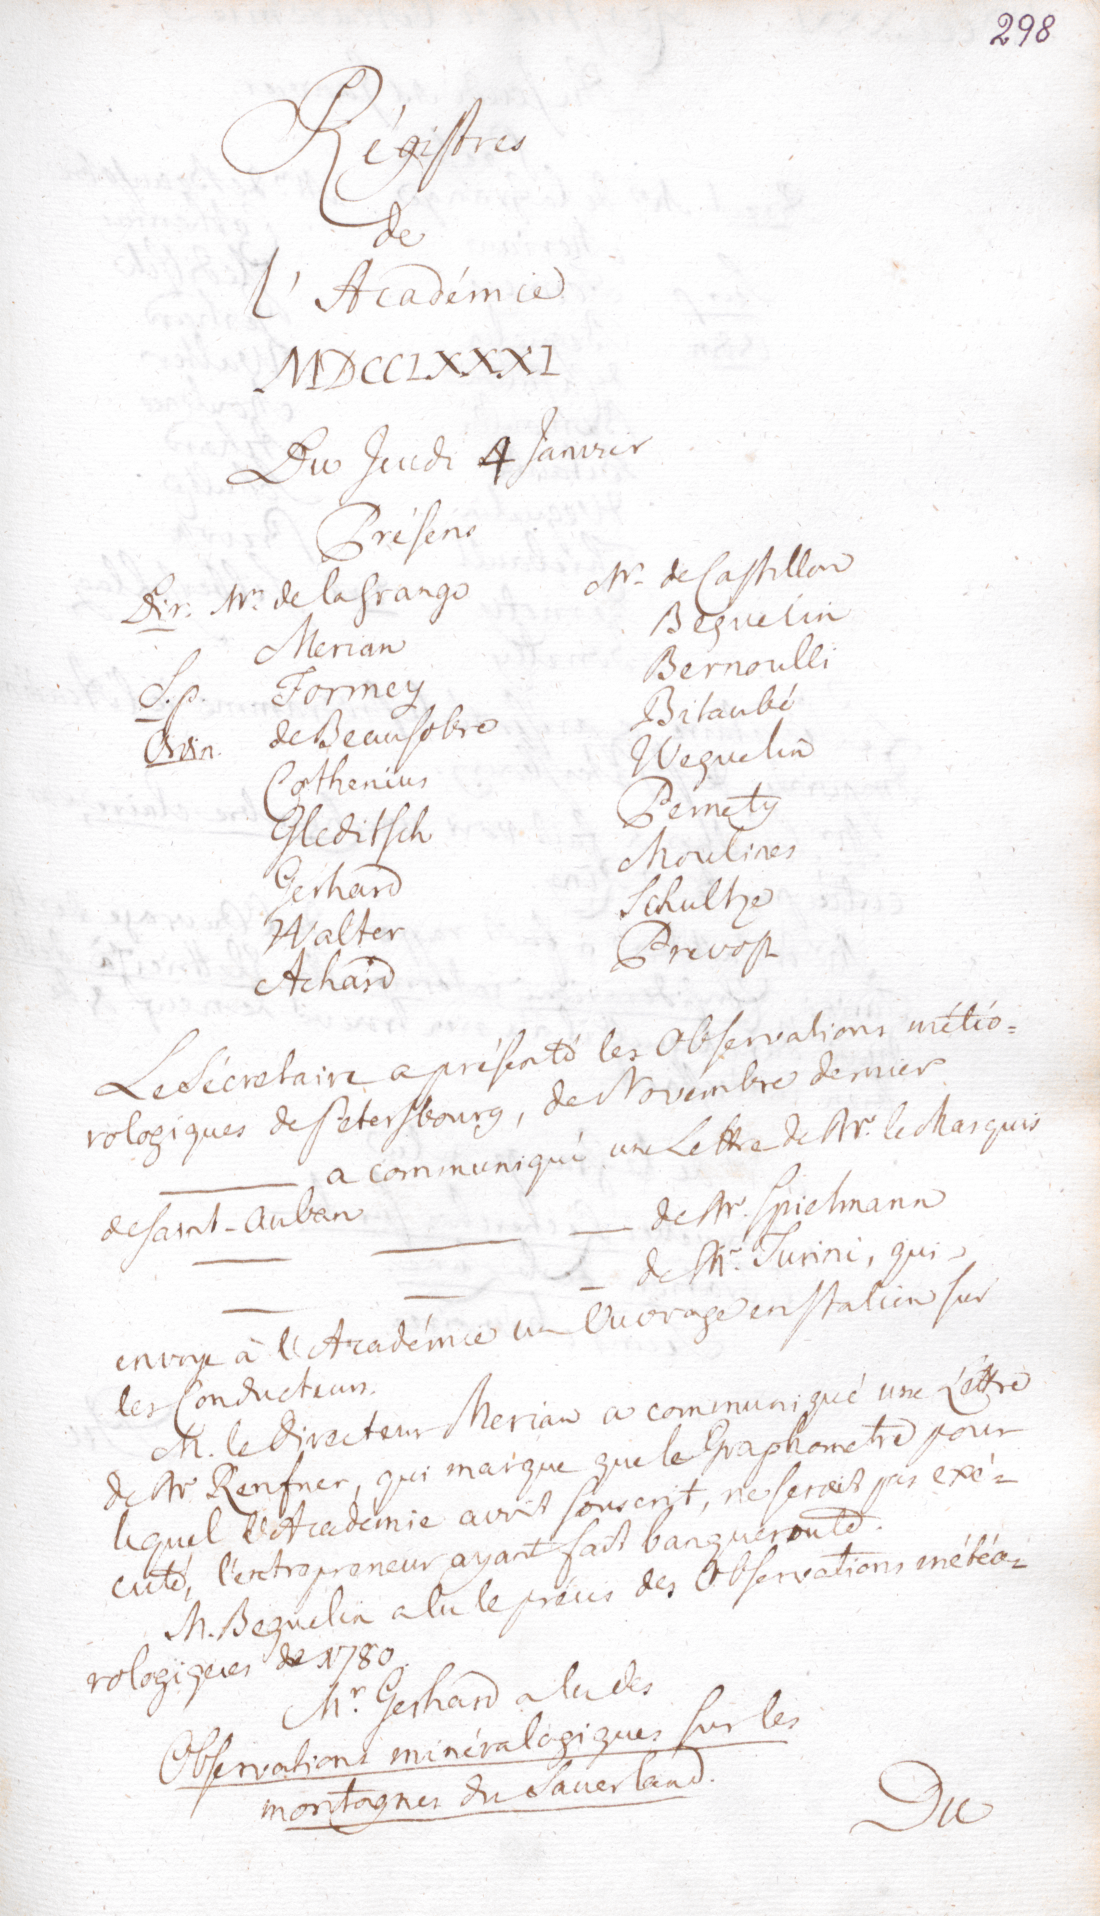 298
Régistres
de
l'Académie
MDCCLXXXI
Du Jeudi 4 Janvier
Présens
Dir. Mrs. de la Grange
Merian
S.p. Formey
Ordin. de Beausobre
Cothenius
Gleditsch
Gerhard
Walter
Achard
Mrs. de Castillon
Beguelin
Bernoulli
Bitaubé
Weguelin
Pernety
Moulines
Schultze
Prevost
Le Sécretaire a présenté les Observations météo=
rologiques de Petersbourg, de Novembre dernier
——— a communiqué une Lettre de Mr. le Marquis
de Saint-Auban
— — — de Mr. Spielmann
— — — de Mr. Turini, qui
envoye à l'Académie un Ouvrage en Italien sur
les Conducteurs.
M. le Directeur Merian a communiqué une Lettre
de Mr Renfner, qui marque que le Graphometre pour
lequel l'Académie avoit souscrit, ne seroit pas exé=
cuté, l'entrepreneur ayant fait banqueroute.
M. Beguelin a lu le précis des Observations météo=
rologiques de 1780.
Mr. Gerhard a lu des
Observations minéralogiques sur les
montagnes du Sauerland.
Du